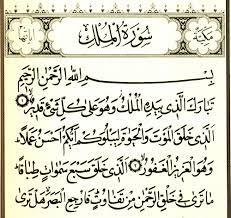 سُورَةُ المُلْكِ
بِسْمِ اللهِ الرَّحْمٰنِ الرَّحِيمِ
تَبَارَكَ الَّذِي بِيَدِهِ الْمُلْكُ وَهُوَ عَلَى كُلِّ شَيْءٍ قَدِيرٌ
الَّذِي خَلَقَ الْمَوْتَ وَالْحَيٰوةَ لِيَبْلُوَكُمْ أَيُّكُمْ أَحْسَنُ عَمَلًا
وَهُوَ الْعَزِيزُ الْغَفُورُ الَّذِي خَلَقَ سَبْعَ سَمٰوَاتٍ طِبَاقًا
مَا تَرَى فِي خَلْقِ الرَّحْمٰنِ مِنْ تَفَاوُتٍ فَارْجِعِ الْبَصَرَ هَلْ تَرَى